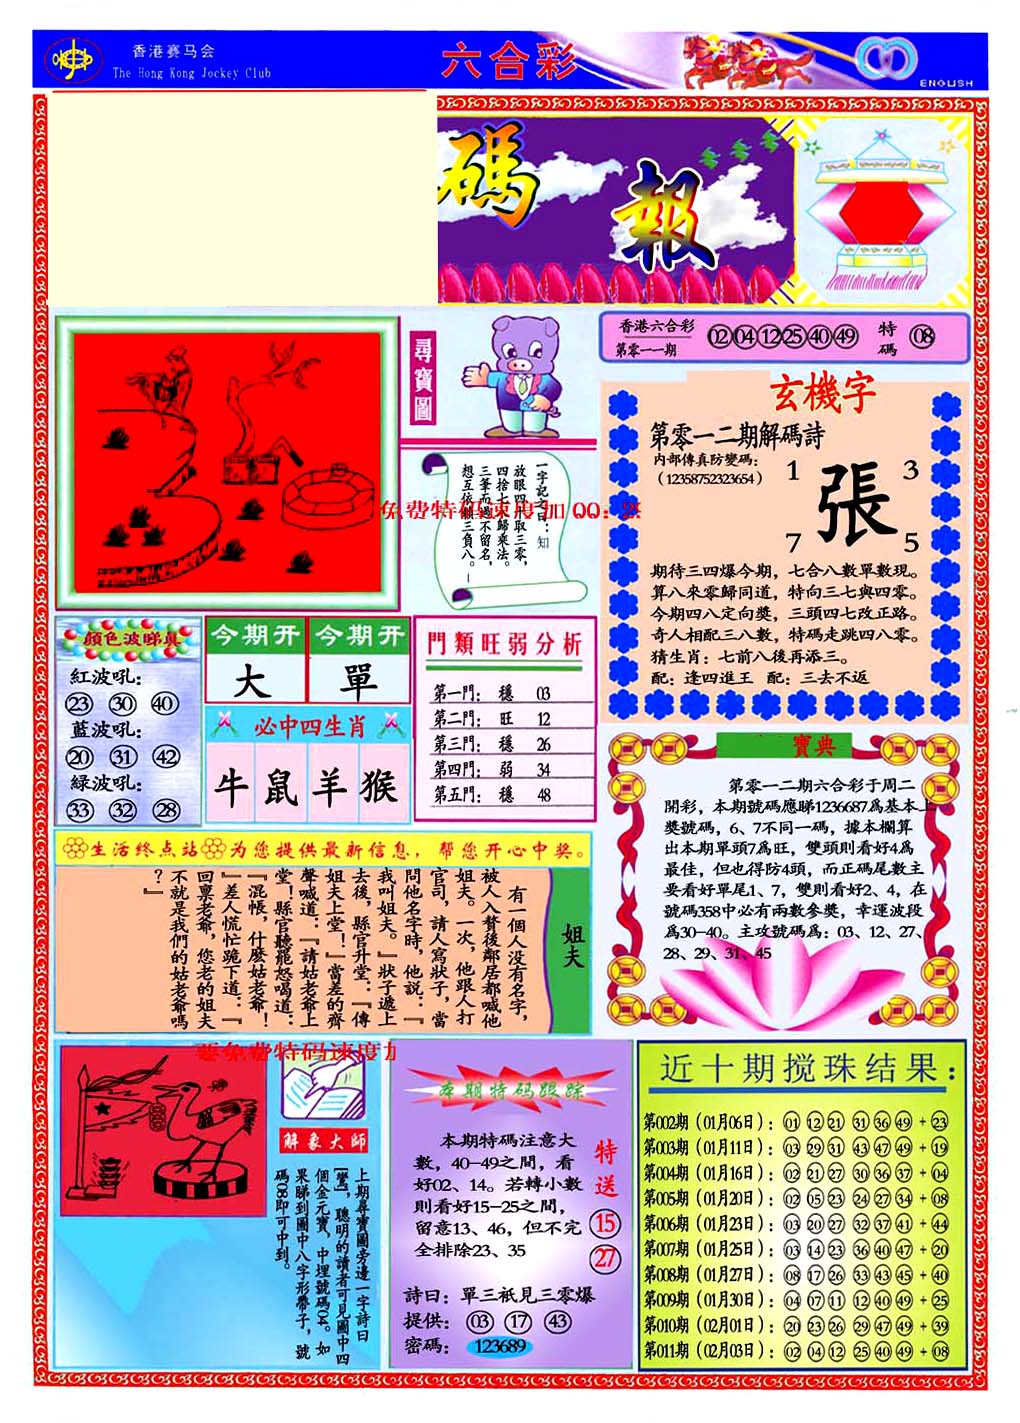 香港赛马会
The Hong Kong Jockey Club
六合彩
ENGLISH
碼
報
香港六合彩
第零一一期
02 04 12 25 40 49
特碼
08
尋寶圖
一字記之曰：知
放眼四十取三零，
四捨七八歸乘法。
三筆而過不留名，
想互依賴三負八。
免费特码速度加QQ：
玄機字
第零一二期解碼詩
内部傳真防變碼：
（12358752323654）
1
3
張
7
5
期待三四爆今期，七合八數單數現。
算八來零歸同道，特向三七與四零。
今期四八定向獎，三頭四七改正路。
奇人相配三八數，特碼走跳四八零。
猜生肖：七前八後再添三。
配：逢四進王 配：三去不返
顏色波睇真
紅波吼：
23 30 40
藍波吼：
20 31 42
緑波吼：
33 32 28
今期开 今期开
大 單
必中四生肖
牛 鼠 羊 猴
門類旺弱分析
第一門： 穩 03
第二門： 旺 12
第三門： 穩 26
第四門： 弱 34
第五門： 穩 48
寶典
第零一二期六合彩于周二
開彩，本期號碼應睇1236687爲基本上
獎號碼，6、7不同一碼，據本欄算
出本期單頭7爲旺，雙頭則看好4爲
最佳，但也得防4頭，而正碼尾數主
要看好單尾1、7，雙則看好2、4，在
號碼358中必有兩數參獎，幸運波段
爲30-40。主攻號碼爲：03、12、27、
28、29、31、45
生活终点站 为您提供最新信息，帮您开心中奖。
姐夫
有一個人没有名字，
被人入贅後鄰居都喊他
姐夫。一次，他跟人打
官司，請人寫狀子，當
問他名字時，他説：『
我叫姐夫。』狀子遞上
去後，縣官升堂：『傳
姐夫上堂！』當差的齊
聲喊道：『請姑老爺上
堂！縣官聽罷怒喝道：
『混帳，什麽姑老爺！
』差人慌忙跪下道：『
回禀老爺，您老的姐夫
不就是我們的姑老爺嗎
？』
要免费特码速度加
解象大師
上期尋寶圖旁邊一字詩曰
【驚】，聰明的讀者可見圖中四
個金元寶，中埋號碼04。如
果睇到圖中八字形帶子，號
碼08即可中到。
本期特码跟踪
本期特碼注意大
數，40-49之間，看
好02、14。若轉小數
則看好15-25之間，
留意13、46，但不完
全排除23、35
特送
15
27
詩曰：單三祇見三零爆
提供： 03 17 43
密碼： 123689
近十期搅珠结果：
第002期（01月06日）：01 12 21 31 36 49 + 23
第003期（01月11日）：03 29 31 43 47 49 + 19
第004期（01月16日）：02 21 27 30 36 37 + 04
第005期（01月20日）：02 05 23 24 27 34 + 08
第006期（01月23日）：03 20 27 32 37 41 + 44
第007期（01月25日）：03 14 23 36 40 47 + 20
第008期（01月27日）：08 17 26 33 43 45 + 40
第009期（01月30日）：04 07 11 12 40 49 + 25
第010期（02月01日）：20 23 26 29 47 49 + 39
第011期（02月03日）：02 04 12 25 40 49 + 08